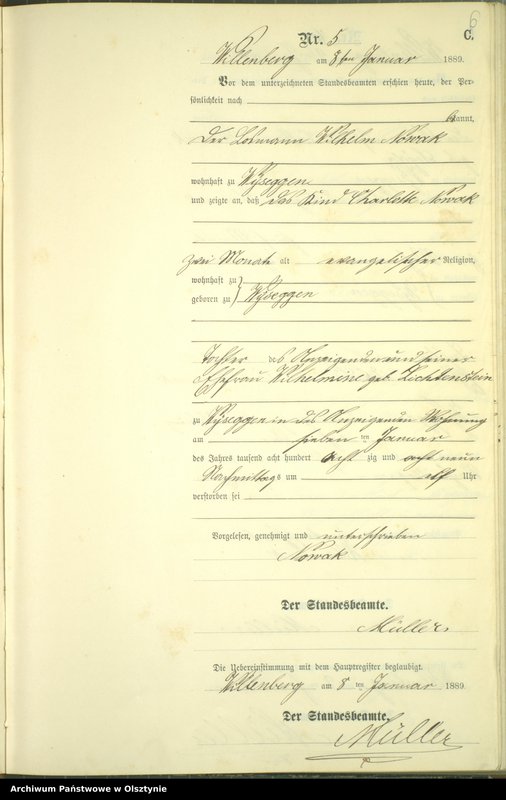 6
C.
Nr. 5
Willenberg am 8ten Januar 1889.
Vor dem unterzeichneten Standesbeamten erschien heute, der Per-
sönlichkeit nach
bekannt,
der Losmann Wilhelm Nowak
wohnhaft zu Wyseggen
und zeigte an, daß das Kind Charlotte Nowak
zwei Monate alt evangelischer Religion,
wohnhaft zu
geboren zu Wyseggen
Tochter des Anzeigenden und seiner
Ehefrau Wilhelmine geb. Lichtenstein
zu Wyseggen in des Anzeigenden Wohnung
am sieben ten Januar
des Jahres tausend acht hundert acht zig und neun
Nachmittags um elf Uhr
verstorben sei
Vorgelesen, genehmigt und unterschrieben
Nowak
Der Standesbeamte.
Müller.
Die Uebereinstimmung mit dem Hauptregister beglaubigt.
Willenberg am 8 ten Januar 1889.
Der Standesbeamte.
Müller
Archiwum Państwowe w Olsztynie